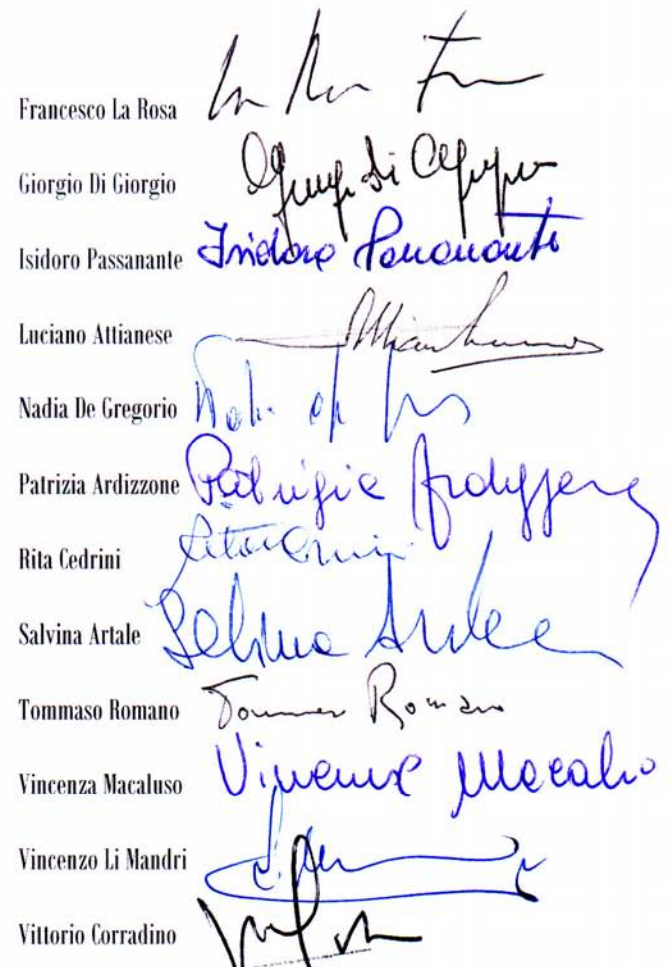 Francesco La Rosa
Giorgio Di Giorgio
Isidoro Passanante Isidoro Passanante
Luciano Attianese
Nadia De Gregorio
Patrizia Ardizzone Patrizia Ardizzone
Rita Cedrini
Salvina Artale Salvina Artale
Tommaso Romano Tommaso Romano
Vincenza Macaluso Vincenza Macaluso
Vincenzo Li Mandri
Vittorio Corradino